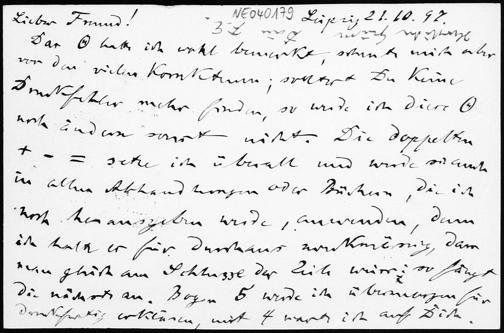 NE040179
Lieber Freund! Leipzig 21.10.97.
Das Θ hatte ich wohl bemerkt, scheute mich aber
vor den vielen Korrekturen; solltest Du keine
Druckfehler mehr finden, so werde ich diese Θ
noch ändern sonst nicht. Die doppelten
+ - = setze ich überall und werde sie auch
in allen Abhandlungen oder Büchern, die ich
noch herausgeben werde, anwenden, denn
ich halte es für durchaus zweckmässig, dass
man gleich am Schlusse der Zeile weiss: so fängt
die nächste an. Bogen 5 werde ich übermorgen für
druckfertig erklären, mit 4 warte ich auf Dich.